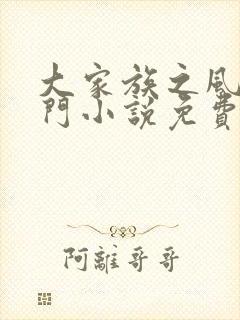 大家族之風
門小説免費
阿離哥哥